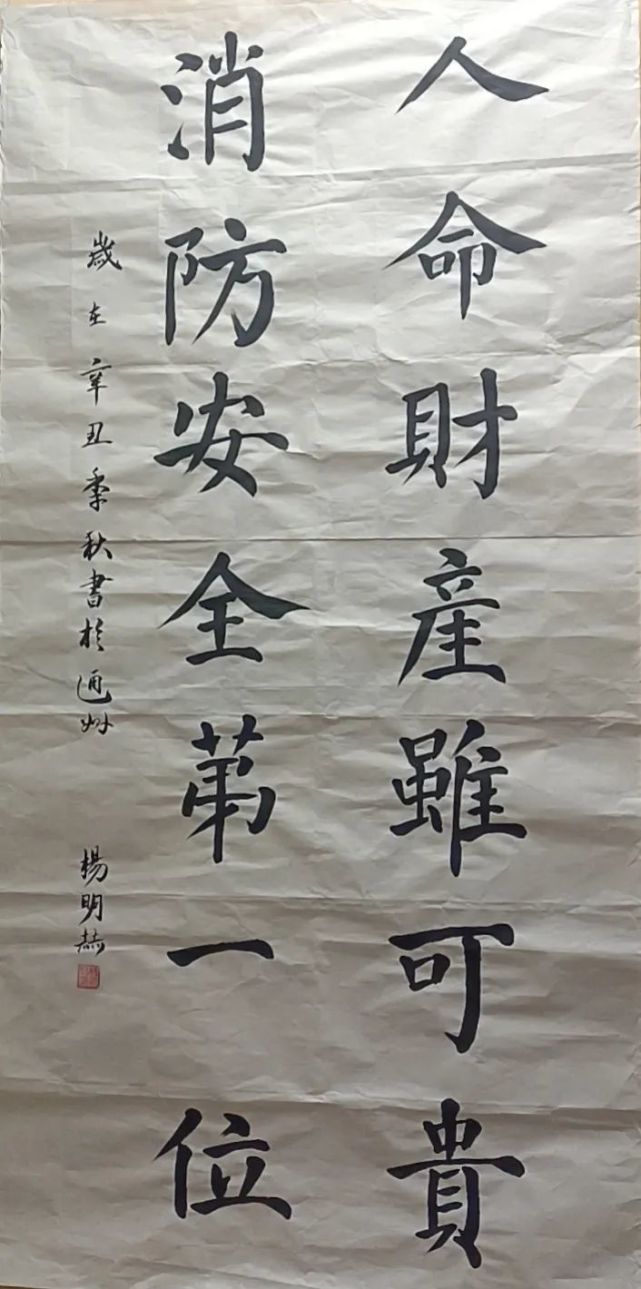 人命財產雖可貴
消防安全第一位
歲在辛丑季秋書於通州
楊明赫